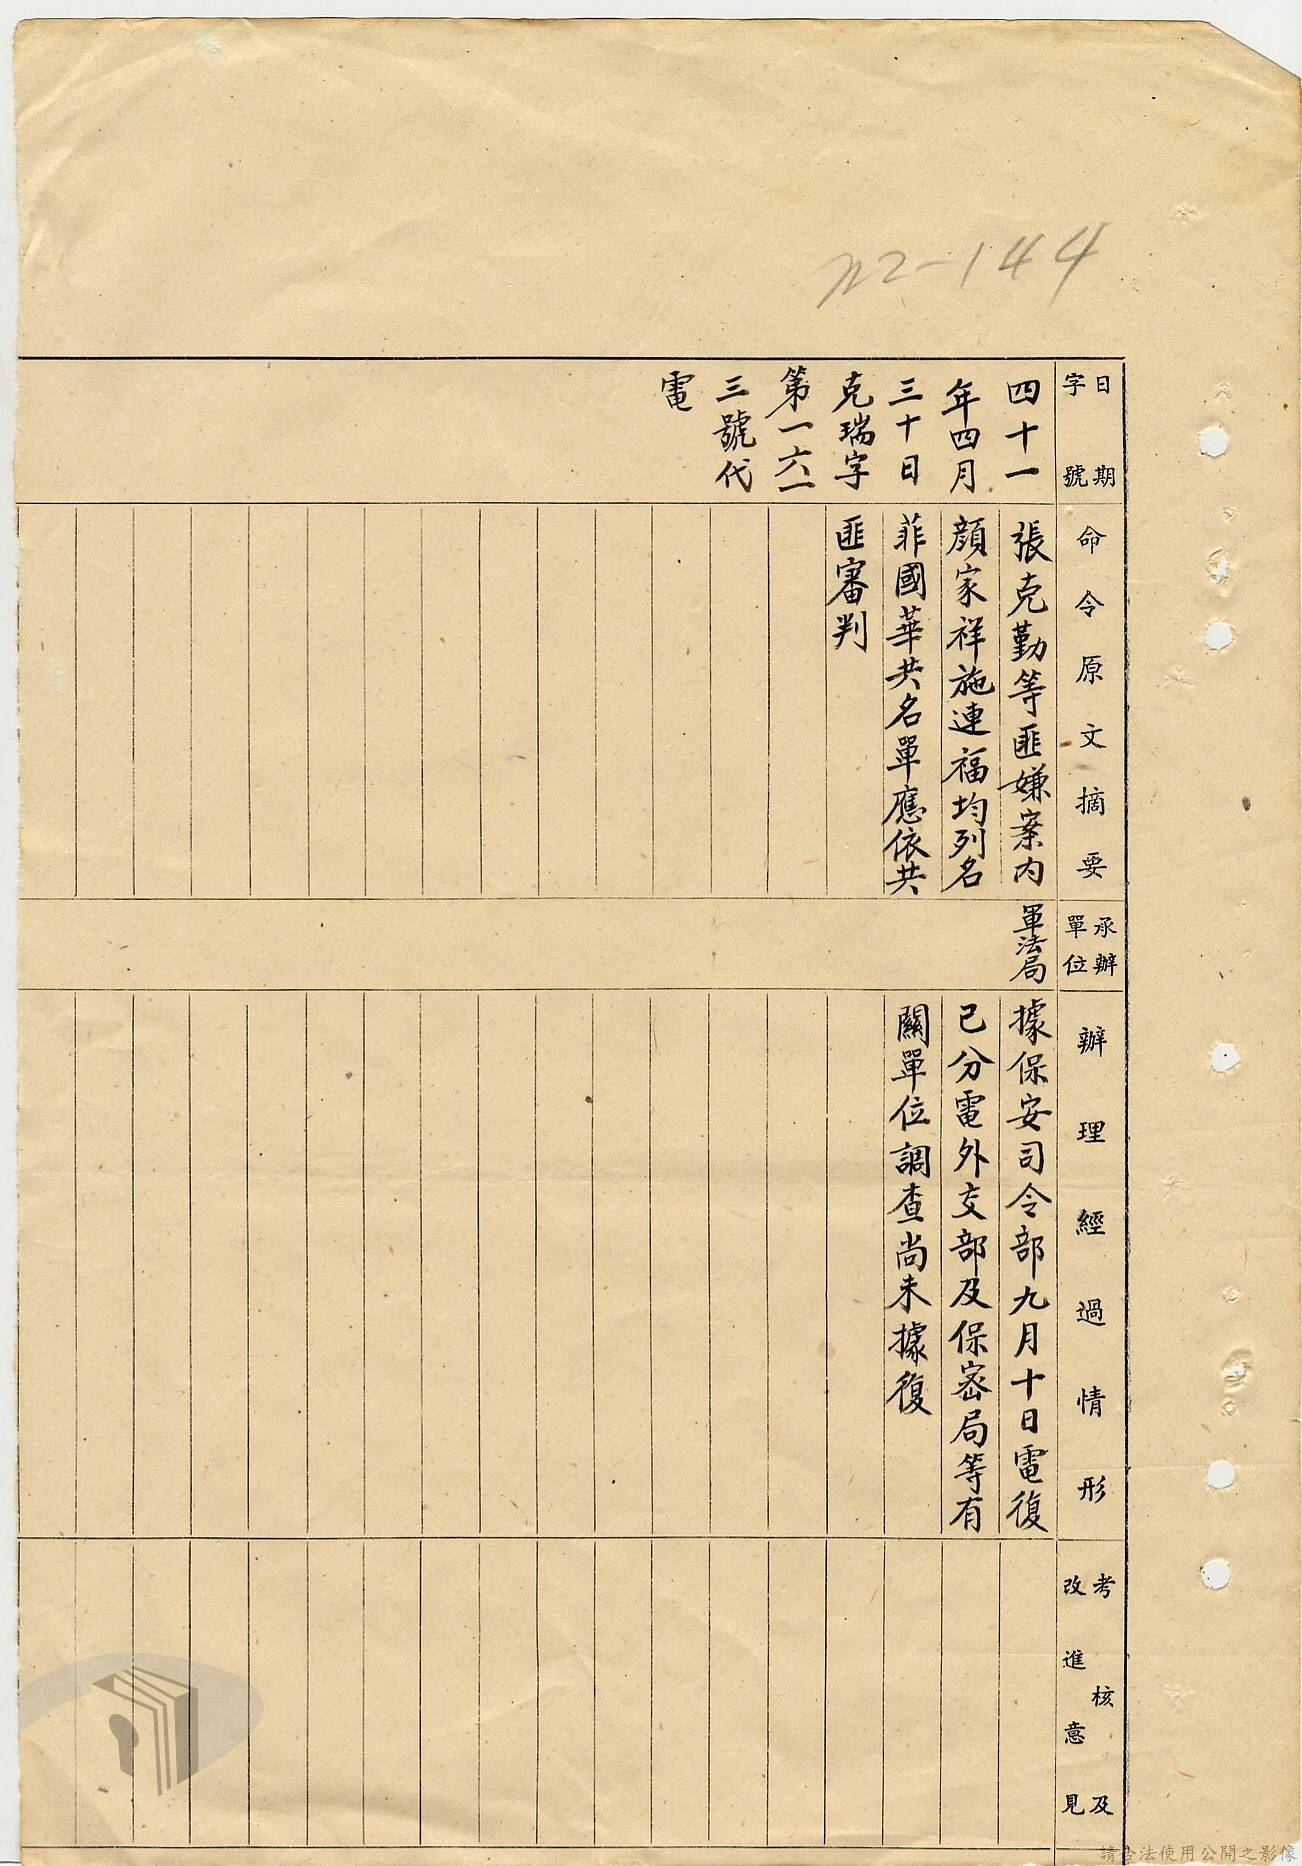 112-144
日期
字號
四十一
年四月
三十日
克瑞字
第一六一
三號代
電
命令原文摘要
張克勤等匪嫌案內
顏家祥施連福均列名
菲國華共名單應依共
匪審判
承辦
單位
軍法局
辦理經過情形
據保安司令部九月十日電復
已分電外交部及保密局等有
關單位調查尚未據復
考核及
改進意見
請合法使用公開之影像